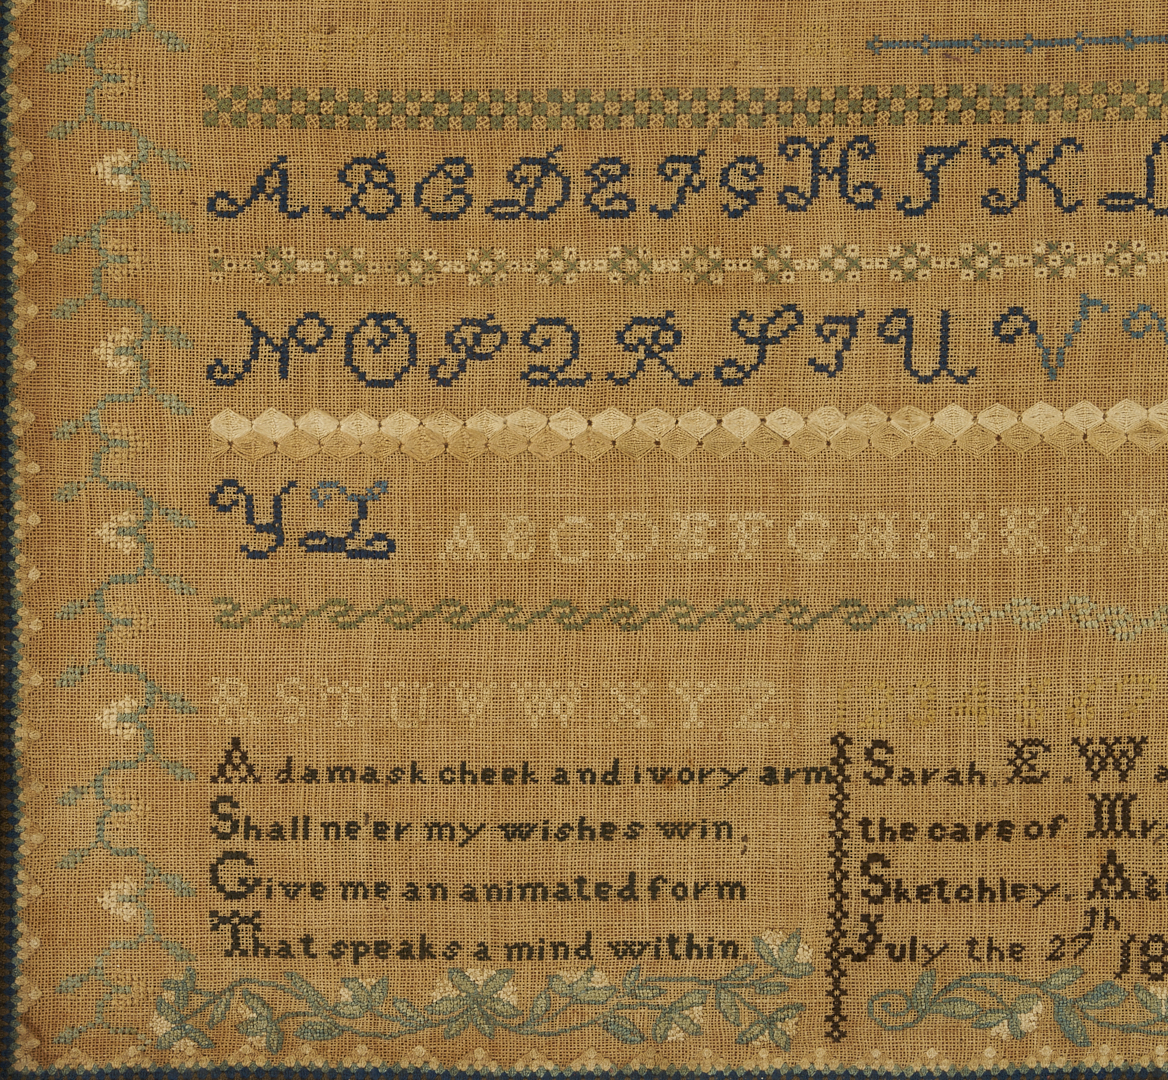 A B C D E F G H I K L
N O P Q R S T U V
Y Z A B C D E F G H I J K L M
R S T U V W X Y Z 1 2 3 4 5 6 7
A damask cheek and ivory arm
Shall ne'er my wishes win,
Give me an animated form
That speaks a mind within.
Sarah. E. Wa
the care of Mr,
Sketchley. At
July the 27th 18